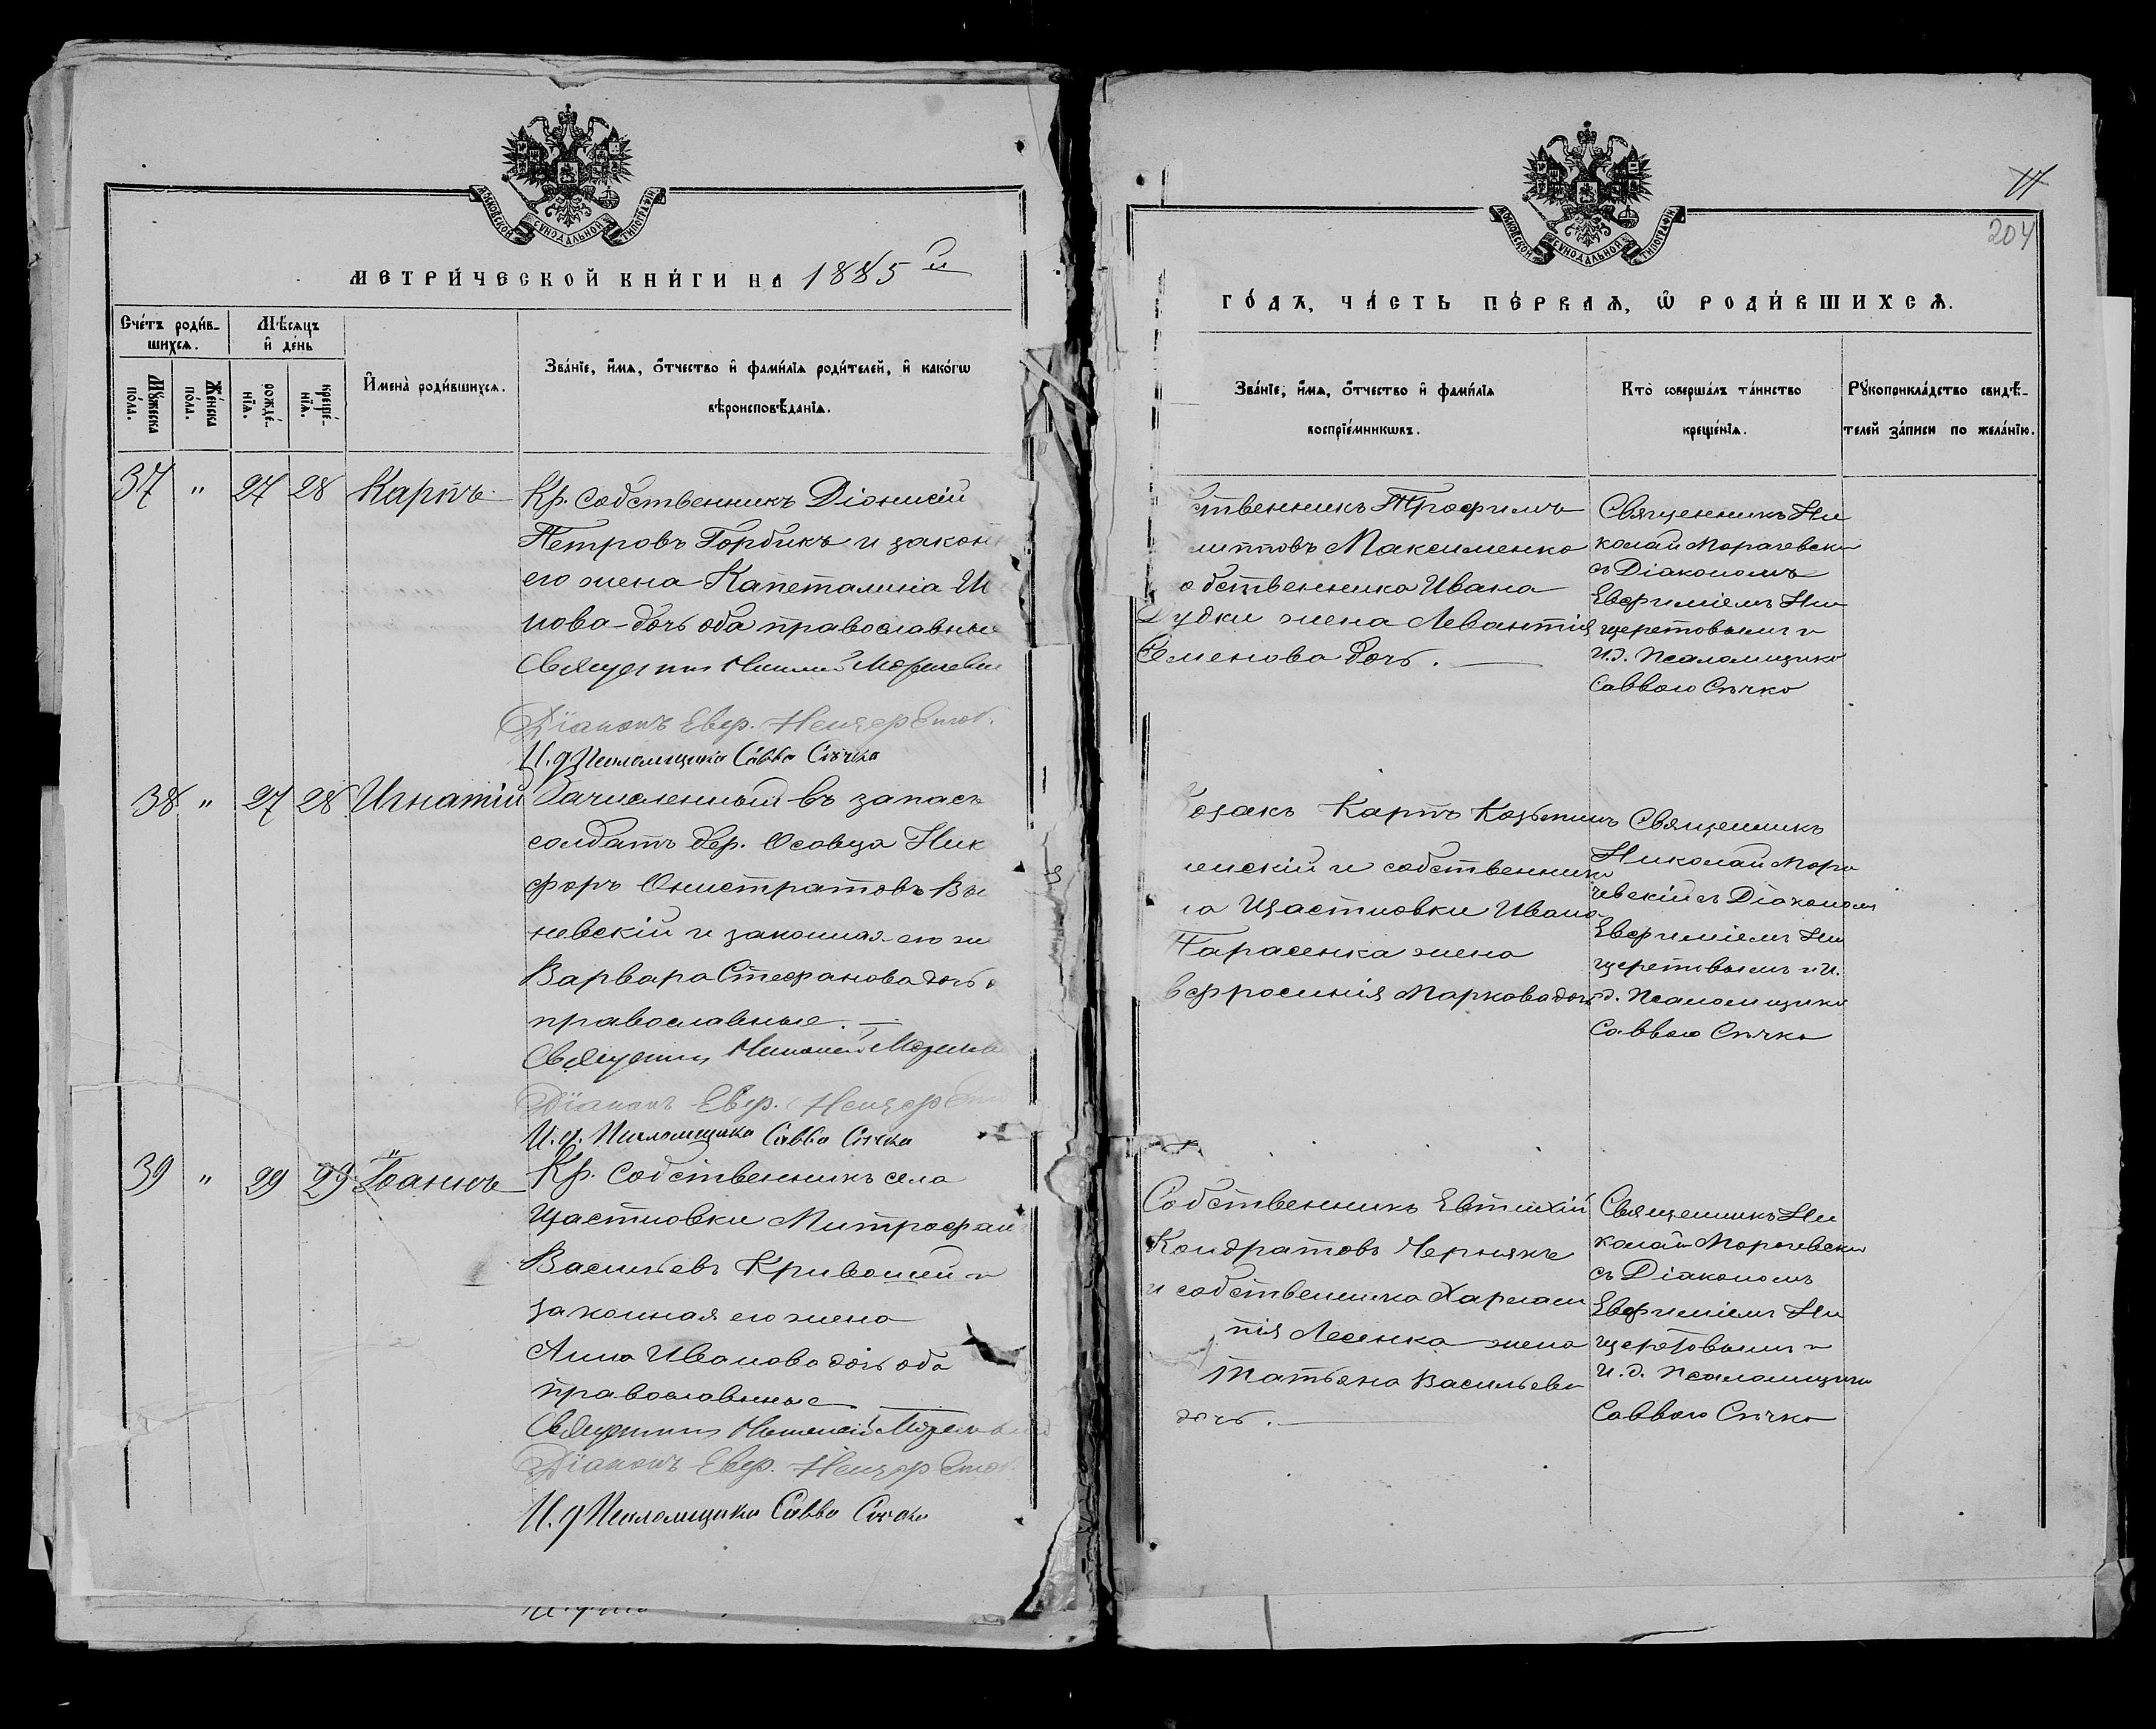 МОСКОВСКОЙ СѴНОДАЛЬНОЙ ТИПОГРАФІИ
МЕТРИ́ЧЕСКОЙ КНИ́ГИ НА 1885 й
Сче́тъ роди́в-
шихсѧ.
Мѣ́сѧцъ
и҆ де́нь
Мꙋ́жеска по́ла.
Же́нска по́ла.
рожде́-нїѧ.
креще́-нїѧ.
И҆мена̀ роди́вшихсѧ.
Зва́нїе, и҆́мѧ, ѻ҆́тчество и҆ фами́лїѧ роди́телей, и҆ како́гѡ
вѣроисповѣ́данїѧ.
37 " 27 28 Карпъ
Кр. собственникъ Діонисій
Петровъ Горбикъ и закон
его жена Капеталина И
нова дочь оба православные
Священник Николай
Діаконъ Евф.
И. д Псаломщика Савва Сѣчка
38 " 27 28 Игнатій
Зачисленный въ запасъ
солдатъ дер. Осовца Ник
форъ Онистратовъ
невскій и законная его ж
Варвара Стефанова дочь о
православные.
Священник Николай
Діаконъ Евф.
И. д. Псаломщика Савва Сѣчка
39 " 29 29 Іоаннъ
Кр. Собственникъ села
Щастновки Митрофан
Васильевъ Кривошей и
законная его жена
Анна Иванова дочь оба
православные
Священник Николай
Діаконъ Евф.
И. д Псаломщика Савва Сѣчка
204
МОСКОВСКОЙ СѴНОДАЛЬНОЙ ТИПОГРАФІИ
ГО́ДЪ, ЧА́СТЬ ПЕ́РВАѦ, Ѽ РОДИ́ВШИХСѦ.
Зва́нїе, и҆́мѧ, ѻ҆́тчество и҆ фами́лїѧ
воспрїе́мникѡвъ.
Кто̀ соверша́лъ та́инство
креще́нїѧ.
Рꙋкоприкла́дство свидѣ́-
телей за́писи по жела́нїю.
ственникъ Трофимъ
липповъ Максименко
обственника Ивана
Дудки жена Левантія
Семенова дочь.
Священникъ Ни
колай Морачевски
съ Діакономъ
Евфиміемъ Ни
щеретовымъ и
И.д. Псаломщика
Саввою Сѣчко
Козакъ Карпъ Козьминъ
ленскій и собственника
ла Щастновки Ивана
Тарасенка жена
вфросинія Маркова дочь
Священникъ
Николай Мора
чевскій съ Діакономъ
Евфиміемъ Ни
щеретовымъ и И.
д. Псаломщика
Саввою Сѣчко
Собственникъ Евтихій
Кондратовъ Чернякъ
и собственника Харлам
пія Лесенка жена
Татьяна Васильева
дочь.
Священникъ Ни
колай Морачевски
съ Діакономъ
Евфиміемъ Ни
щеретовымъ и
И.д. Псаломщика
Саввою Сѣчко